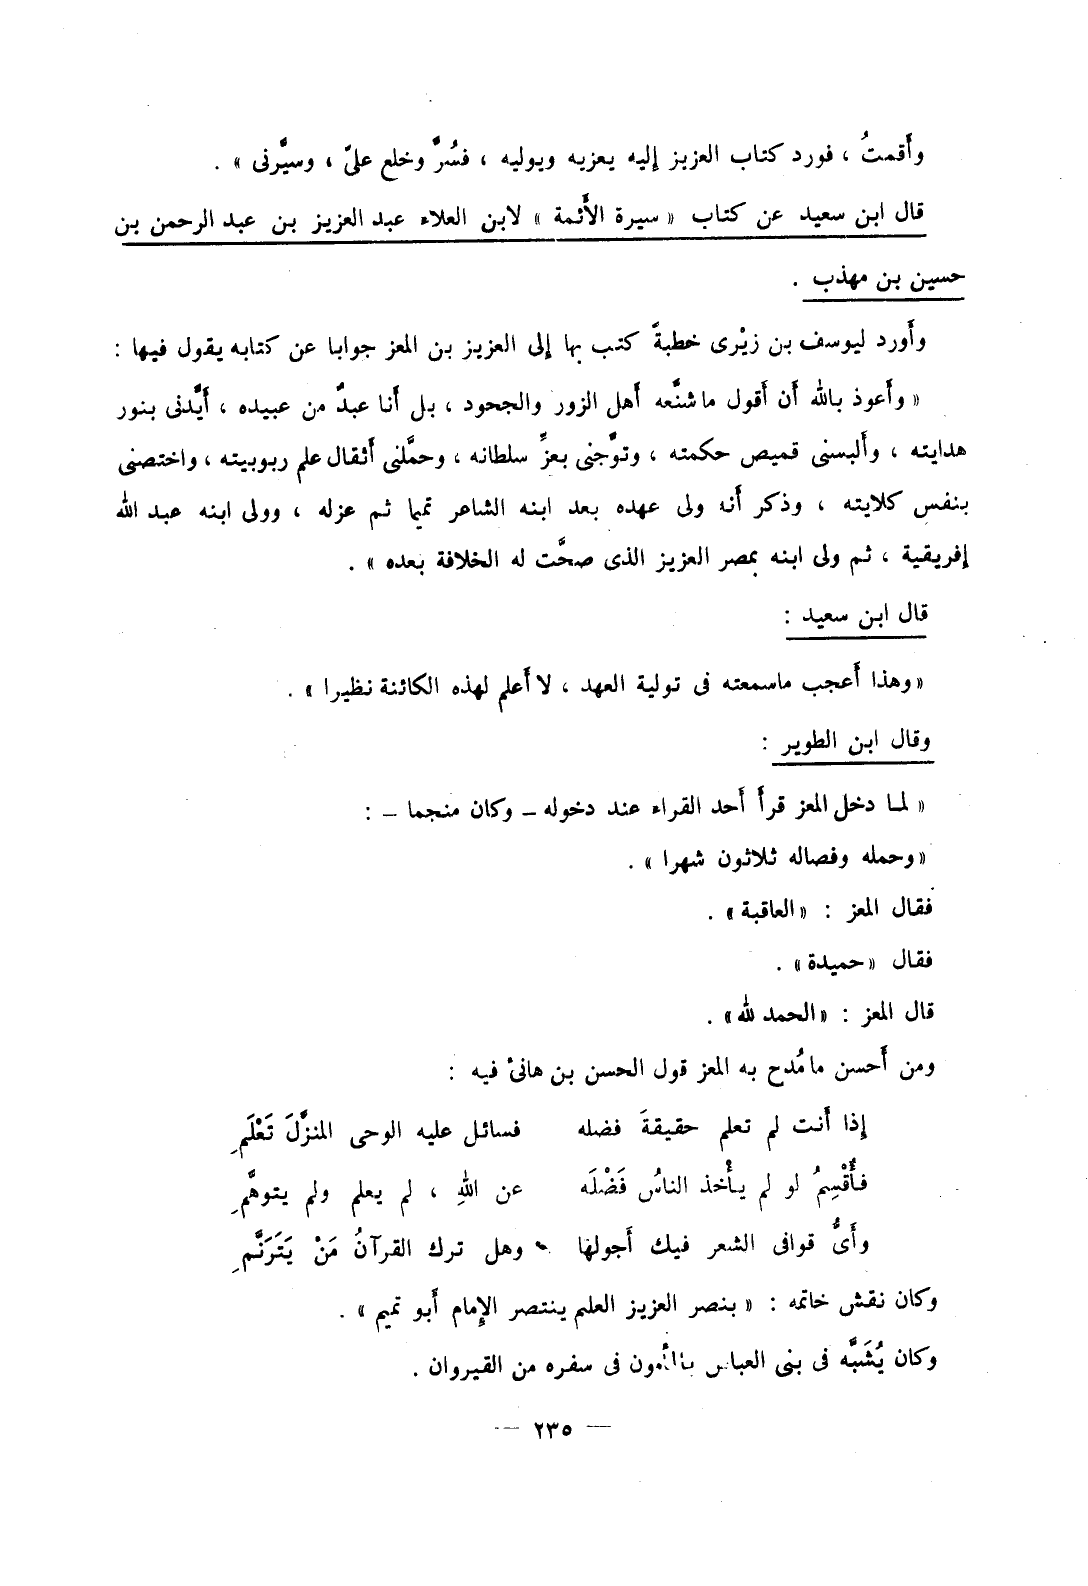 وأَقمتُ ، فورد كتاب العزيز إليه يعزيه ويوليه ، فسُرَّ وخلع علىّ ، وسيَّرنى » .
قال ابن سعيد عن كتاب « سيرة الأَئمة » لابن العلاء عبد العزيز بن عبد الرحمن بن
حسين بن مهذب .
وأَورد ليوسف بن زيْرى خطبةً كتب بها إلى العزيز بن المعز جوابا عن كتابه يقول فيها :
« وأَعوذ بالله أَن أَقول ما شنَّعه أَهل الزور والجحود ، بل أَنا عبدٌ من عبيده ، أَيَّدنى بنور
هدايته ، وأَلبسنى قميص حكمته ، وتوَّجنى بعزِّ سلطانه ، وحمَّلنى أَثقال علم ربوبيته ، واختصنى
بنفس كلايته ، وذكر أَنه ولى عهده بعد ابنه الشاعر تميما ثم عزله ، وولى ابنه عبد الله
إفريقية ، ثم ولى ابنه بمصر العزيز الذى صحَّت له الخلافة بعده » .
قال ابن سعيد :
« وهذا أَعجب ماسمعته فى تولية العهد ، لا أَعلم لهذه الكائنة نظيرا » .
وقال ابن الطوير :
« لمـا دخل المعز قرأَ أَحد القراء عند دخوله ـ وكان منجما ـ :
«وحمله وفصاله ثلاثون شهرا » .
فقال المعز : «العاقبة» .
فقال «حميدة» .
قال المعز : «الحمد لله» .
ومن أَحسن ما مُدح به المعز قول الحسن بن هانئ فيه :
إذا أَنت لم تعلم حقيقةَ فضله فسائل عليه الوحى المنزَّلَ تَعْلَمِ
فأُقْسِمُ لو لم يأْخذ الناسُ فَضْلَه عن اللهِ ، لم يعلم ولم يتوهَّمِ
وأَىُّ قوافى الشعر فيك أَجولها وهل ترك القرآنُ مَنْ يَتَرَنَّمِ
وكان نقش خاتمه : « بنصر العزيز العليم ينتصر الإمام أَبو تميم » .
وكان يُشَبَّه فى بنى العباس بالمأْمون فى سفره من القيروان .
— ٢٣٥ —